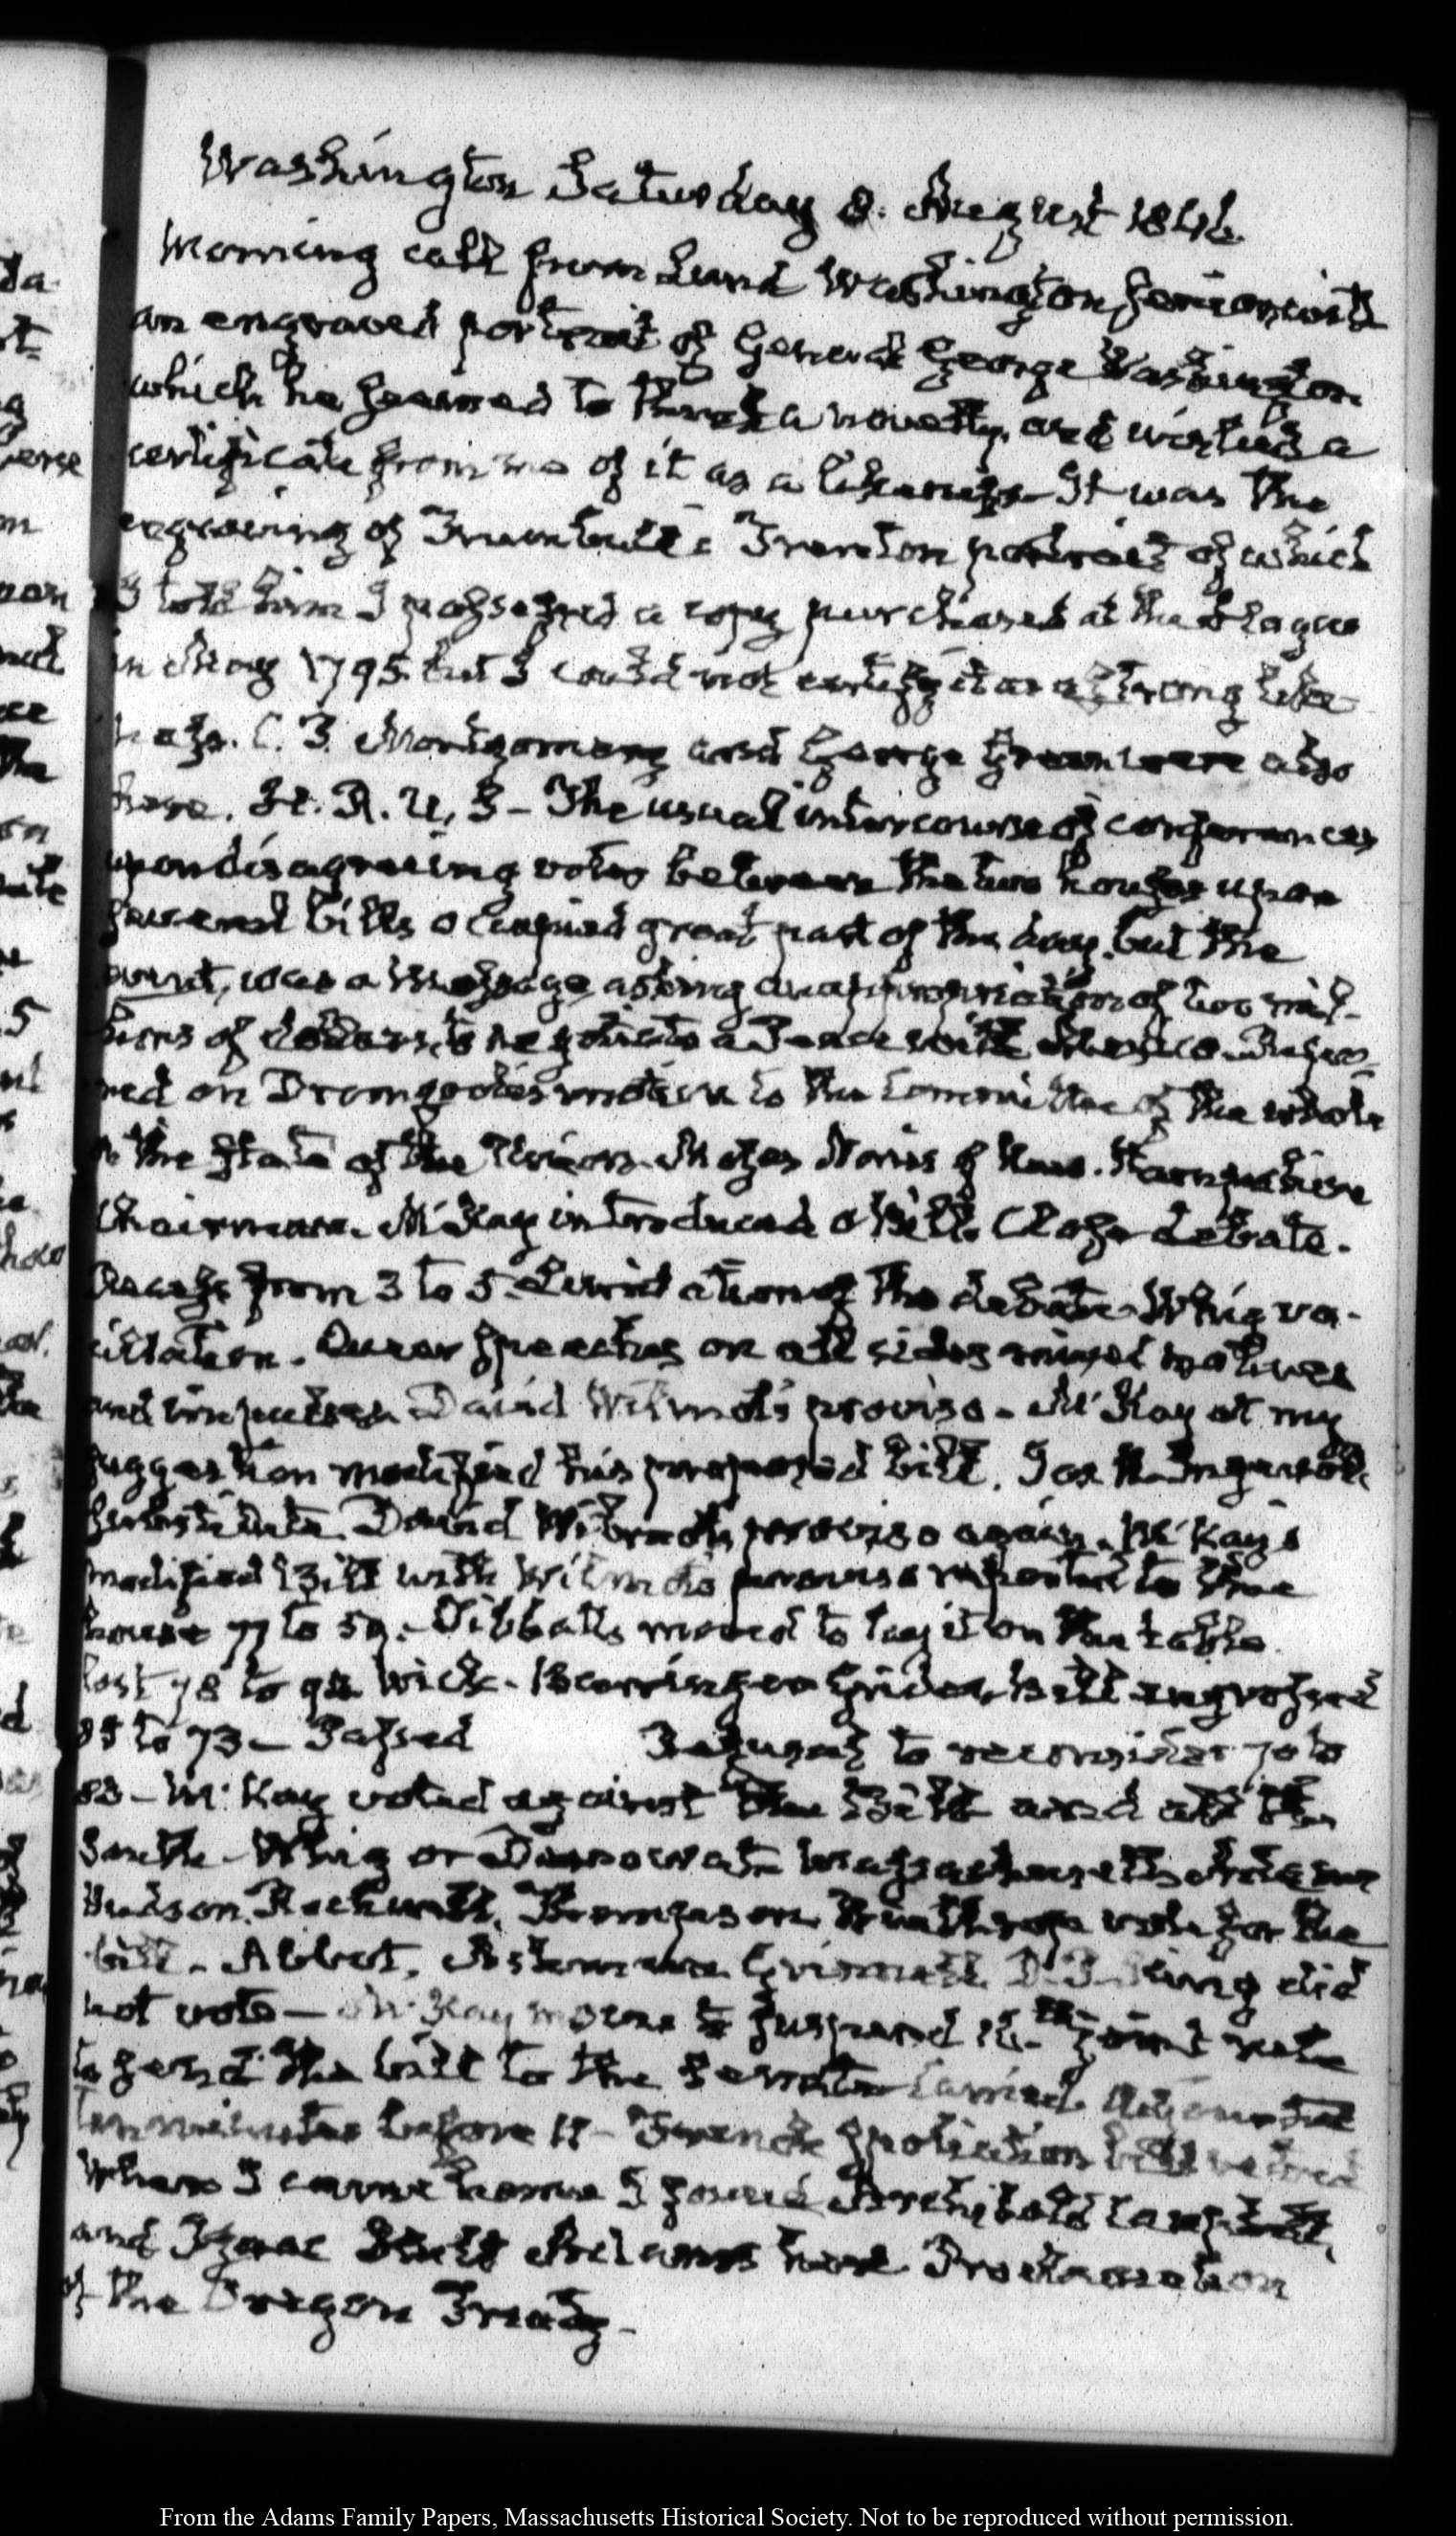 Washington Saturday 8. August 1846.
Morning call from Lund Washington senior with
an engraved portrait of General George Washington
which he seemed to think a novelty, and wished a
certificate from me of it as a likeness. It was the
engraving of Trumbull's Trenton portrait of which
I told him I possessed a copy purchased at the Hague
in May 1795 but I could not certify it as a strong like-
ness. C. B. Montgomery and George Green were also
here. H. R. U. S – The usual intercourse of conferences
upon disagreeing votes between the two houses upon
several bills occupied great part of the day. but the
event, was a message asking an appropriation of two mil-
lions of dollars, to negotiate a Peace with Mexico. Refer-
red on Dromgoole's motion to the Committee of the whole
on the state of the Union. Moses Norris of New. Hampshire
Chairman. McKay introduced a Bill. Close debate.
Recess from 3 to 5. of the debate Whig va-
cillation. Queer speeches on all sides mixed motives
and impulses. David Wilmot's proviso – McKay at my
suggestion modified his proposed bill. Jos R. Ingersoll's
substitute. David Wilmot's proviso again. McKay's
modified Bill with Wilmot's proviso reported to the
house 77 to 59. – Tibbatts moved to lay it on the table.
lost 78 to 92 Wick. Barringer Grider bill engrossed
85 to 73 – Passed Refusal to reconsider 70 to
83 – McKay voted against the Bill and all the
South. Whig or Democrat. Massachusetts
Hudson. Rockwell, Thompson. Winthrop vote for the
bill. – Abbot, Ashmun Grinnell D. P. King did
not vote – McKay moves to suspend the 16th joint rule
to send the bill to the Senate carried. Adjourned
ten minutes before 11 – French spoliation bill vetoed
When I came home I found Archibald Campbell,
and Isaac Hull Adams here Proclamation
of the Oregon Treaty –
From the Adams Family Papers, Massachusetts Historical Society. Not to be reproduced without permission.